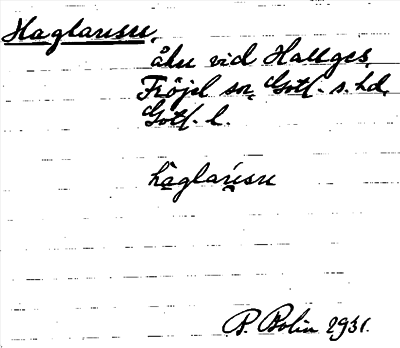 Haglarusu,
åkr vid Hallges,
Fröjel sn, Gotl. s. hd,
Gotl. l.
haglarusu
P. Bolin 1931.